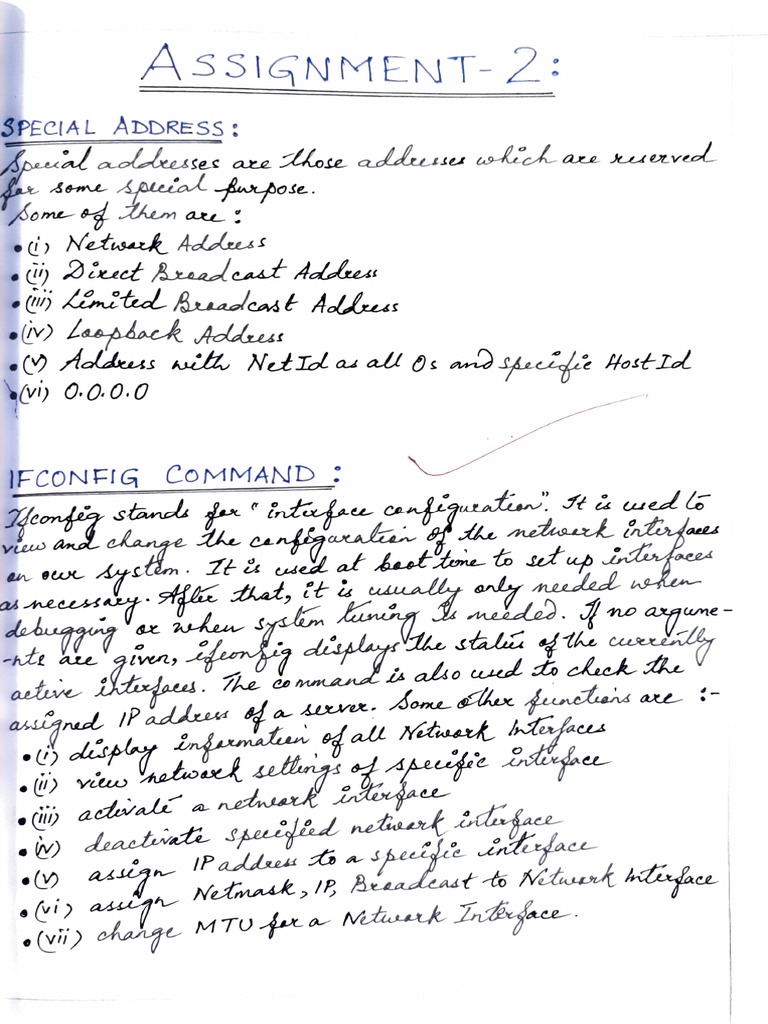 ASSIGNMENT-2:
SPECIAL ADDRESS:
Special addresses are those addresses which are reserved
for some special purpose.
Some of them are:
•(i) Network Address
•(ii) Direct Broadcast Address
•(iii) Limited Broadcast Address
•(iv) Loopback Address
•(v) Address with NetId as all 0s and specific HostId
•(vi) 0.0.0.0
IFCONFIG COMMAND:
Ifconfig stands for "interface configuration". It is used to
view and change the configuration of the network interfaces
on our system. It is used at boot time to set up interfaces
as necessary. After that, it is usually only needed when
debugging or when system tuning is needed. If no argume-
-nts are given, ifconfig displays the status of the currently
active interfaces. The command is also used to check the
assigned IP address of a server. Some other functions are :-
•(i) display information of all Network Interfaces
•(ii) view network settings of specific interface
•(iii) activate a network interface
•(iv) deactivate specified network interface
•(v) assign IP address to a specific interface
•(vi) assign Netmask, IP, Broadcast to Network Interface
•(vii) change MTU for a Network Interface.